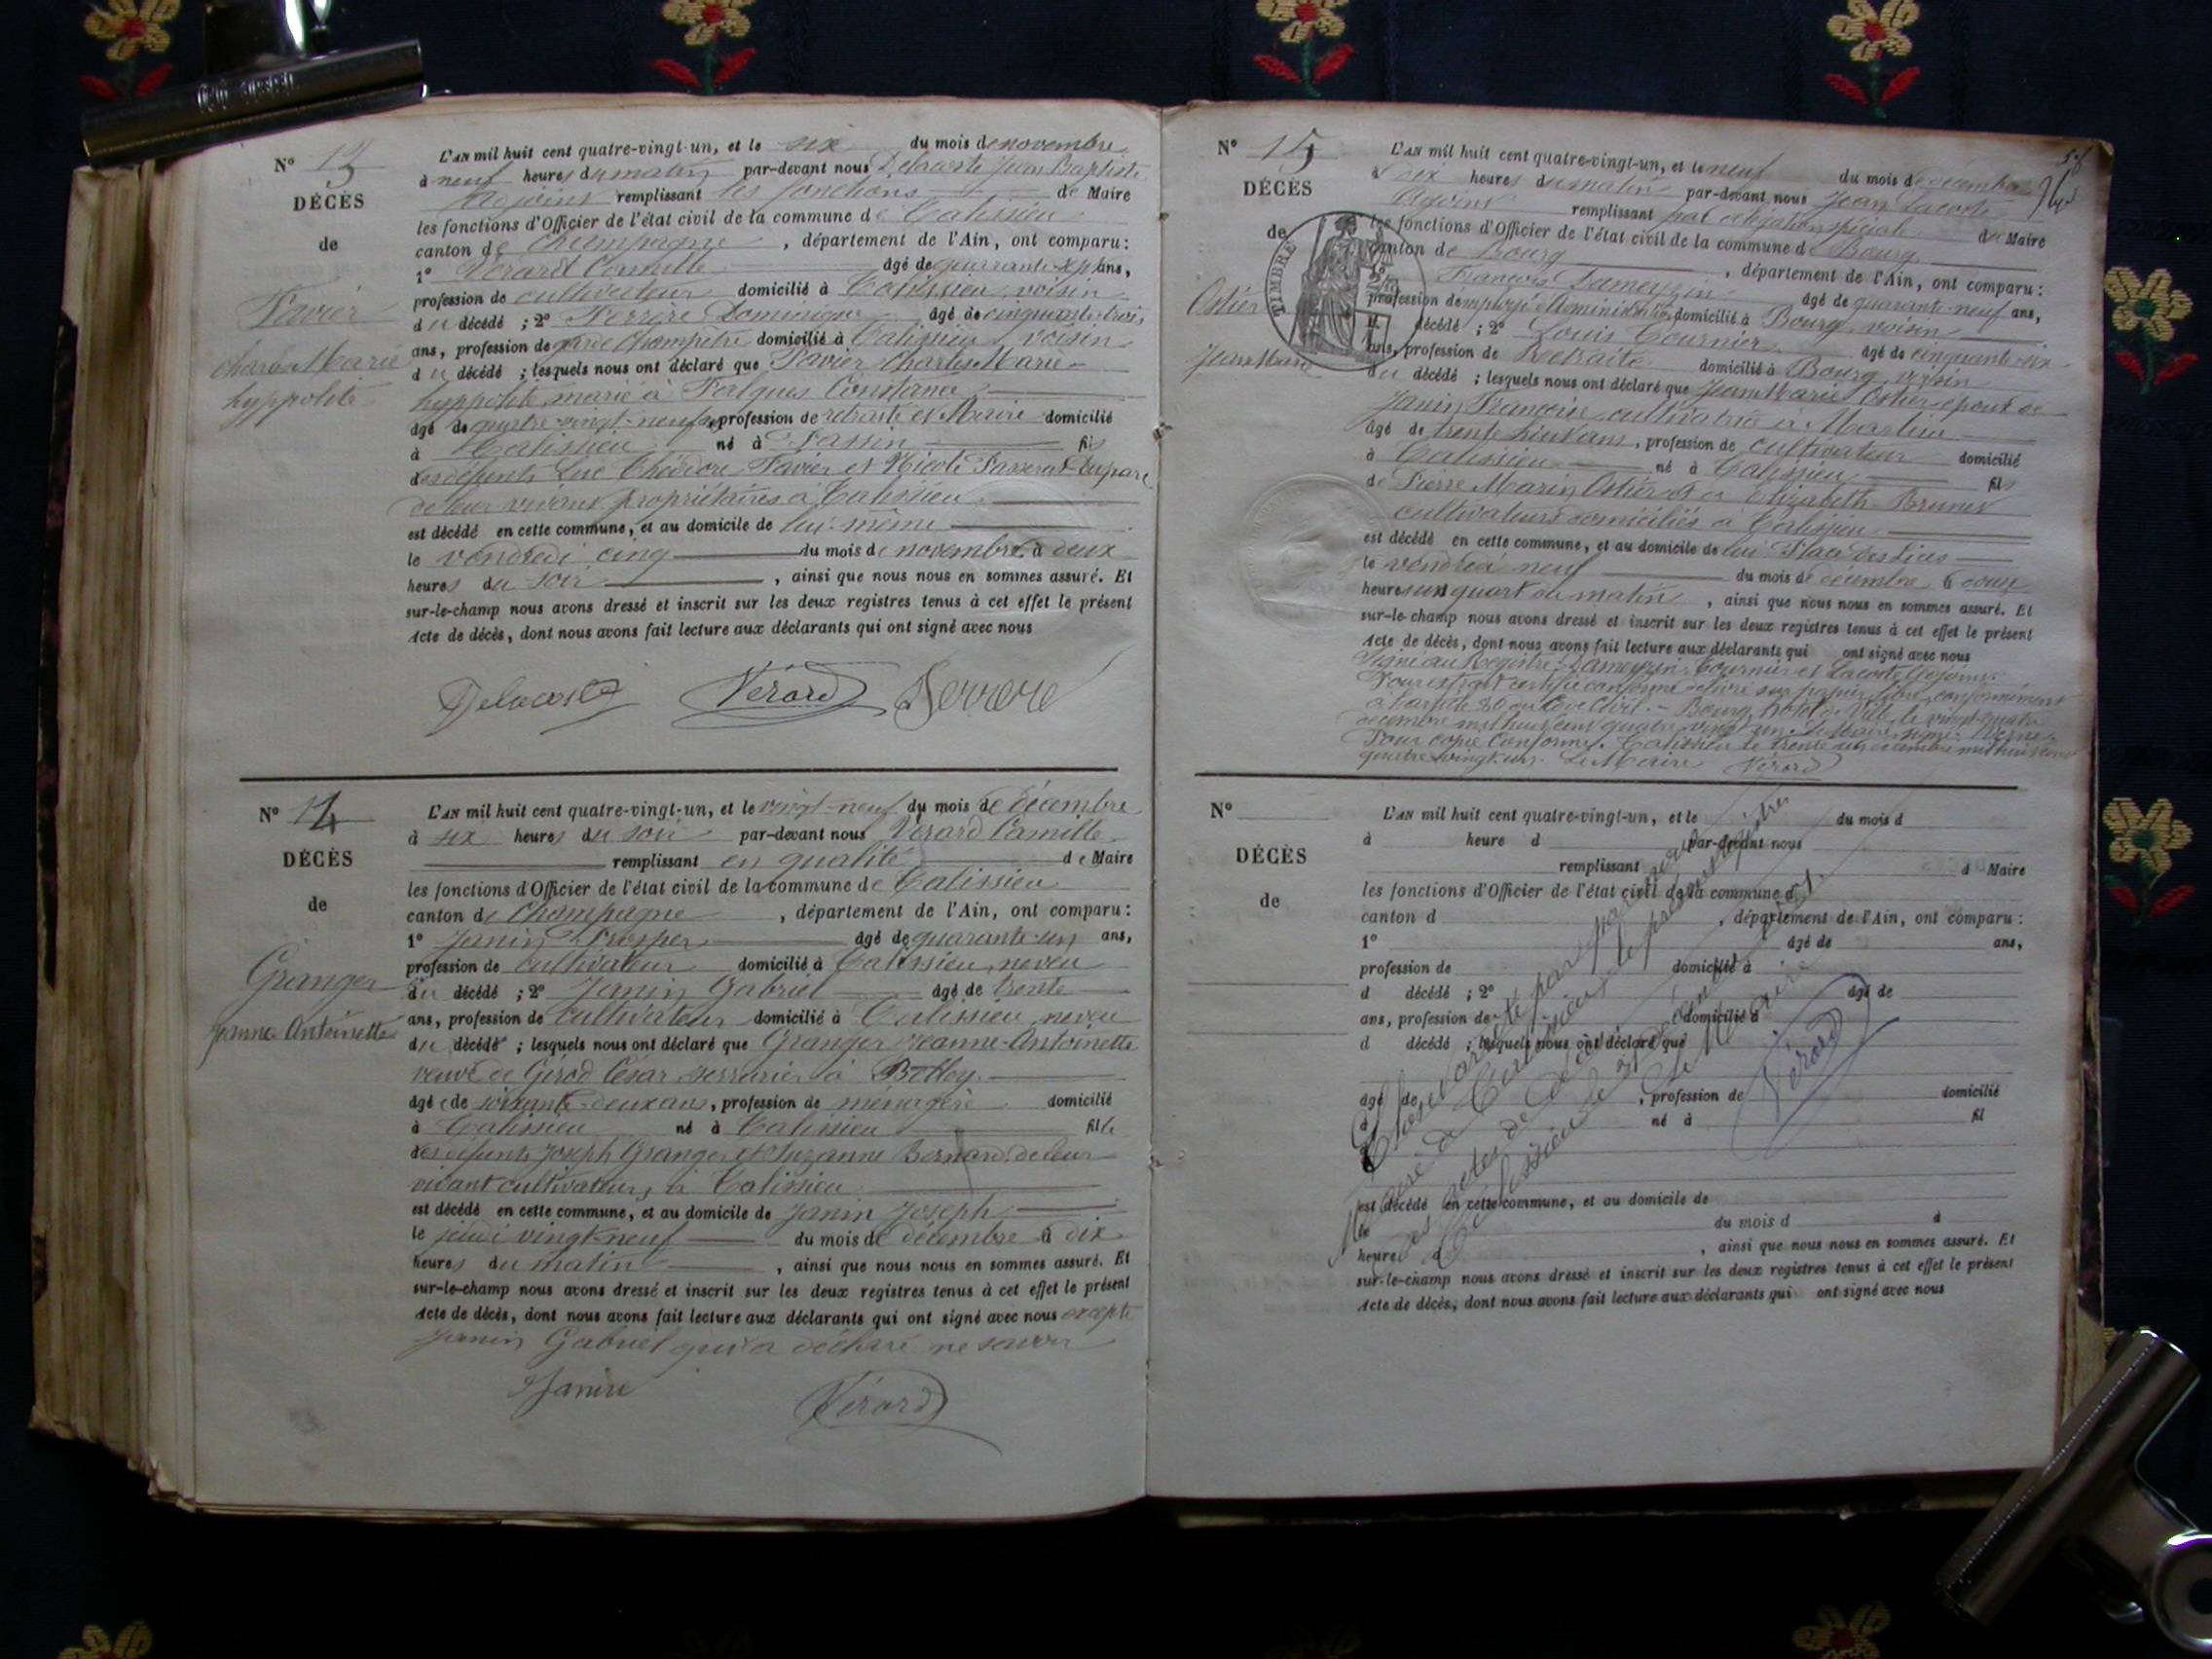 N° 13
DÉCÈS
de
Favier
Charles Marie
hyppolite
L'AN mil huit cent quatre-vingt-un, et le six du mois de novembre
à neuf heures du matin par-devant nous Delacoste Jean Baptiste
Adjoint remplissant les fonctions de Maire
les fonctions d'Officier de l'état civil de la commune de Talissieu
canton de Champagne, département de l'Ain, ont comparu:
1° Vérard Camille âgé de quarante-sept ans,
profession de cultivateur domicilié à Talissieu, voisin
du décédé ; 2° Ferrere Dominique âgé de cinquante-trois
ans, profession de garde Champêtre domicilié à Talissieu, voisin
du décédé ; lesquels nous ont déclaré que Favier Charles Marie
hyppolite marié à Falques Constance
âgé de quatre-vingt-neuf, profession de retraité et Maire domicilié
à Talissieu né à fils
des défunts Luc Théodore Favier et Nicole Passerat Duparc
de leur vivant propriétaires à Talissieu
est décédé en cette commune, et au domicile de lui-même
le vendredi cinq du mois de novembre à deux
heures du soir, ainsi que nous nous en sommes assuré. Et
sur-le-champ nous avons dressé et inscrit sur les deux registres tenus à cet effet le présent
Acte de décès, dont nous avons fait lecture aux déclarants qui ont signé avec nous
Delacoste Vérard Ferrere
N° 14
DÉCÈS
de
Granger
Jeanne-Antoinette
L'AN mil huit cent quatre-vingt-un, et le vingt-neuf du mois de décembre
à six heures du soir par-devant nous Vérard Camille
remplissant en qualité de Maire
les fonctions d'Officier de l'état civil de la commune de Talissieu
canton de Champagne, département de l'Ain, ont comparu:
1° Janin Prosper âgé de quarante-un ans,
profession de cultivateur domicilié à Talissieu, neveu
du décédé ; 2° Janin Gabriel âgé de trente
ans, profession de cultivateur domicilié à Talissieu, neveu
du décédé ; lesquels nous ont déclaré que Granger Jeanne-Antoinette
veuve de Girod César serrurier à Belley
âgé de soixante-deux ans, profession de ménagère domicilié
à Talissieu né à Talissieu fille
des défunts Joseph Granger et Suzanne Bernard, de leur
vivant cultivateurs à Talissieu
est décédé en cette commune, et au domicile de Janin Joseph
le jeudi vingt-neuf du mois de décembre à dix
heures du matin, ainsi que nous nous en sommes assuré. Et
sur-le-champ nous avons dressé et inscrit sur les deux registres tenus à cet effet le présent
Acte de décès, dont nous avons fait lecture aux déclarants qui ont signé avec nous excepté
Janin Gabriel qui a déclaré ne savoir
Janin Vérard
N° 15
DÉCÈS
de
TIMBRE
Ostier
Jean Marie
L'AN mil huit cent quatre-vingt-un, et le neuf du mois de décembre
à dix heures du matin par-devant nous Jean Lacoste
Adjoint remplissant par délégation spéciale du Maire
les fonctions d'Officier de l'état civil de la commune de Bourg
canton de Bourg, département de l'Ain, ont comparu:
François Dameyzin âgé de quarante-neuf ans,
profession de employé domicilié à Bourg, voisin
décédé ; 2° Louis Tournier âgé de cinquante-six
ans, profession de Retraité domicilié à Bourg, voisin
du décédé ; lesquels nous ont déclaré que Jean Marie Ostier époux de
Janin Françoise, cultivatrice à
âgé de trente ans, profession de cultivateur domicilié
à Talissieu né à Talissieu fils
de Pierre Marin Ostier et de Elizabeth Brunet
cultivateurs domiciliés à Talissieu
est décédé en cette commune, et au domicile de lui Place des Lices
le vendredi neuf du mois de décembre à
heures un quart du matin, ainsi que nous nous en sommes assuré. Et
sur-le-champ nous avons dressé et inscrit sur les deux registres tenus à cet effet le présent
Acte de décès, dont nous avons fait lecture aux déclarants qui ont signé avec nous
Signé au Registre : Dameyzin, Tournier et Lacoste Adjoint.
Pour extrait certifié conforme délivré sur papier libre, conformément
à l'article 80 du Code Civil. - Bourg, hôtel de Ville, le vingt-quatre
décembre mil huit cent quatre-vingt-un. Le Maire, signé :
Pour copie Conforme. Talissieu le trente un décembre mil huit cent
quatre-vingt-un. Le Maire Vérard
N°
DÉCÈS
de
L'AN mil huit cent quatre-vingt-un, et le du mois d
à heure d par-devant nous
remplissant d Maire
les fonctions d'Officier de l'état civil de la commune d
canton d , département de l'Ain, ont comparu:
1° âgé de ans,
profession de domicilié à
d décédé ; 2° âgé de
ans, profession de domicilié à
d décédé ; lesquels nous ont déclaré que
âgé de , profession de domicilié
à né à fil
est décédé en cette commune, et au domicile de
le du mois d à
heure d , ainsi que nous nous en sommes assuré. Et
sur-le-champ nous avons dressé et inscrit sur les deux registres tenus à cet effet le présent
Acte de décès, dont nous avons fait lecture aux déclarants qui ont signé avec nous
Clos et arrêté par nous
Maire de Talissieu le présent registre
des actes de Décès
Talissieu le 31 décembre 1881.
Le Maire
Vérard